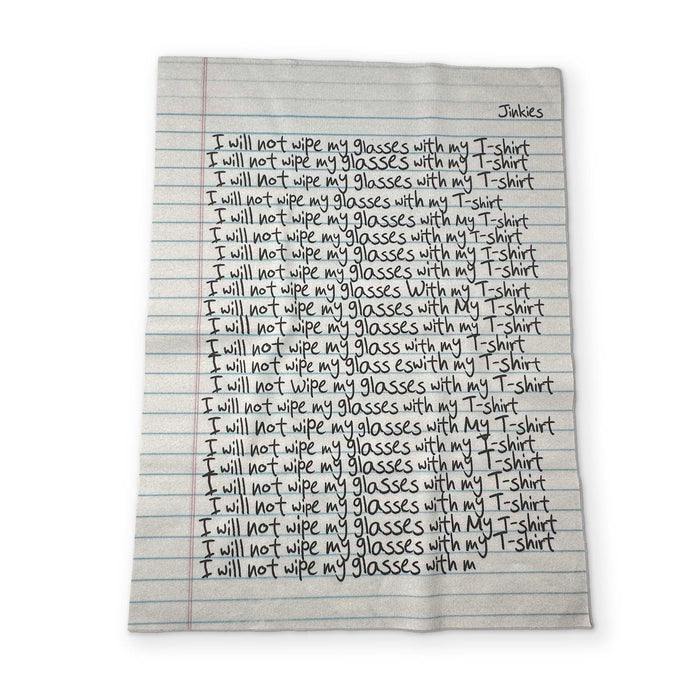 Jinkies
I will not wipe my glasses with my T-shirt
I will not wipe my glasses with my T-shirt
I will not wipe my glasses with my T-shirt
I will not wipe my glasses with my T-shirt
I will not wipe my glasses with My T-shirt
I will not wipe my glasses with my T-shirt
I will not wipe my glasses with my T-shirt
I will not wipe my glasses with my T-shirt
I will not wipe my glasses With my T-shirt
I will not wipe my glasses with My T-shirt
I will not wipe my glasses with my T-shirt
I will not wipe my glass with my T-shirt
I will not wipe my glass eswith my T-shirt
I will not Wipe my glasses with my T-shirt
I will not wipe my glasses with my T-shirt
I will not wipe my glasses with My T-shirt
I will not wipe my glasses with my I-shirt
I will not wipe my glasses with my T-shirt
I will not wipe my glasses with my T-shirt
I will not wipe my glasses with my T-shirt
I will not wipe my glasses with My T-shirt
I will not wipe my glasses with my T-shirt
I will not wipe my glasses with m